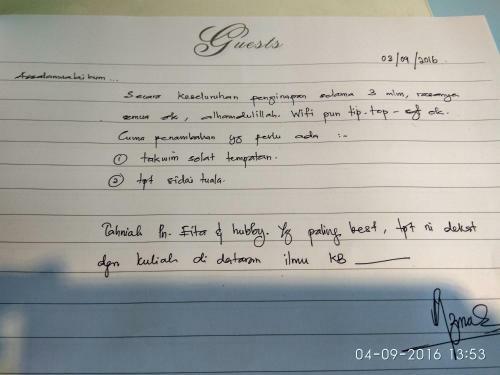 Guests
03/09/2016
Assalamualaikum...
Secara keseluruhan penginapan selama 3 mlm, rasanya
semua ok, alhamdulillah. Wifi pun tip-top - ok.
Cuma penambahan yg perlu ada :-
① takwim solat tempatan.
② tpt sidai tuala.
Tahniah Pn. Eita & hubby. Yg paling best, tpt ni dekat
dgn kuliah di dataran ilmu KB
04-09-2016 13:53